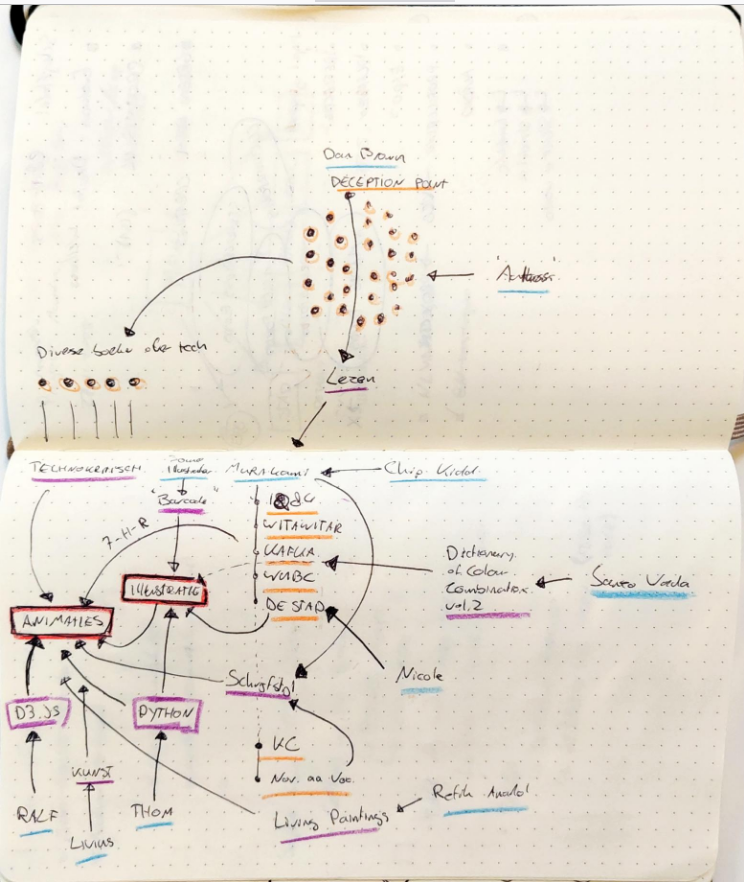 Dan Brown
DECEPTION POINT
Diverse boeken over tech
Lezen
TECHNOKRITISCH
Illustrator
MURAKAMI
Chip Kidd
"Barcode"
1Q84
7-H-R
WITAWITAR
KAFKA
WUBC
DE STAD
Dictionary
of Colour
Combinations
vol.2
Sanzo Wada
ILLUSTRATIE
ANIMATIES
Nicole
Schrijfstijl
D3.JS
PYTHON
KC
KUNST
Nov. aa Voo.
RALF
THOM
Living Paintings
Refik Anadol
Livius